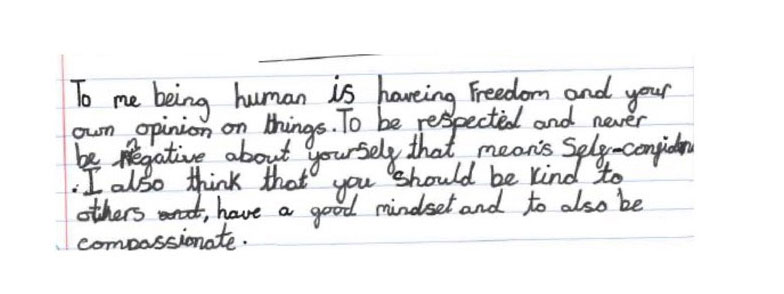 To me being human is haveing Freedom and your
own opinion on things. To be respected and never
be Negative about yourself that means Self-confiden
. I also think that you should be kind to
others and, have a good mindset and to also be
compassionate.